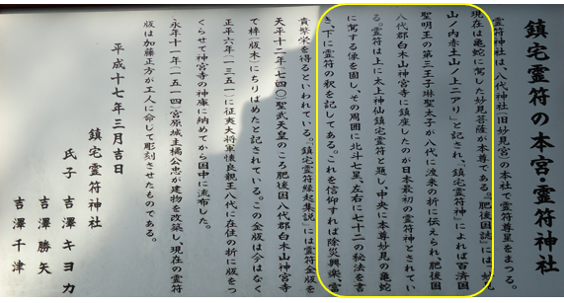 鎮宅霊符の本宮・霊符神社
霊符神社は、八代神社（旧妙見宮）の本社で霊符尊星をまつる。
現在は亀蛇に駕した妙見菩薩が本尊である。『肥後国誌』には、「妙見
山ノ内赤土山ノ上ニアリ」と記され、『鎮宅霊符神』によれば百済国
聖明王の第三王子琳聖太子が八代に渡来の折に伝えられ、肥後国
八代郡白木山神宮寺に鎮座したのが日本最初の霊符神とされてい
る。霊符は上に太上神仙鎮宅霊符と題し、中央に本尊妙見の亀蛇
に駕する像を図し、その周囲に北斗七星、左右に七十二の秘法を書
き、下に霊符の釈を記してある。これを信仰すれば除災興楽、富
貴繁栄を得るといわれている。『鎮宅霊符縁起集説』には霊符金版を
天平十二年（七四〇）聖武天皇のころ肥後国八代郡白木山神宮寺
で梓（版木）にちりばめたと記されている。この金版は今はなく
正平六年（一三五一）に征夷大将軍懐良親王八代に在住の折に版をつ
くらせて神宮寺の神庫に納めてから国中に流布した。
永正十一年（一五一四）宮原城主橘公忠が建物を改築し、現在の霊符
版は加藤正方が工人に命じて彫刻させたものである。
平成十七年三月吉日
鎮宅霊符神社
氏子 吉澤キヨカ
吉澤勝矢
吉澤千津